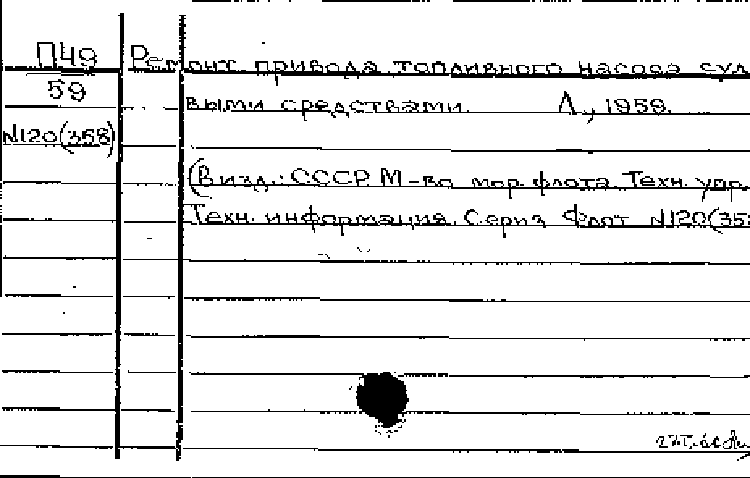 П49 Ремонт привода топливного насоса суд
59
выми средствами. Л., 1959.
N120(358)
(В изд.: СССР. М-во мор. флота. Техн. упр.
Техн. информация. Серия Флот N120(358